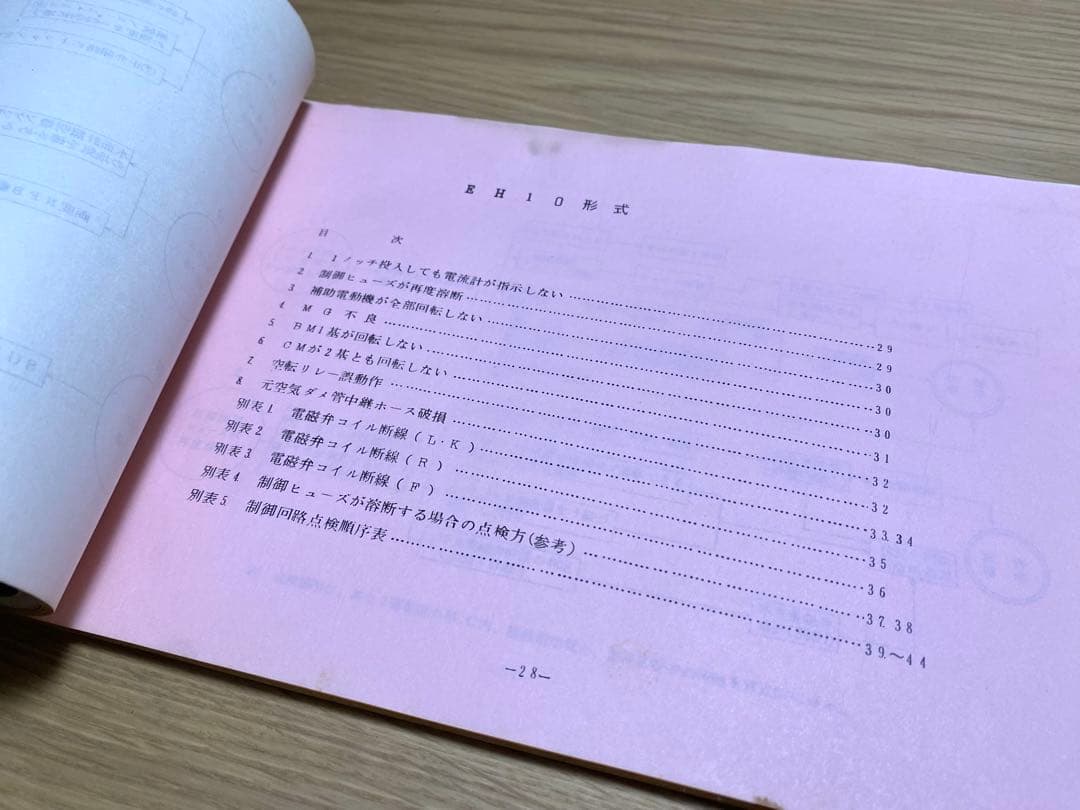 EH10形式
目　次
1. 1ノッチ投入しても電流計が指示しない……………29
2. 制御ヒューズが再度溶断……………29
3. 補助電動機が全部回転しない……………30
4. MG不良……………30
5. BM1基が回転しない……………30
6. CMが2基とも回転しない……………31
7. 空転リレー誤動作……………32
8. 元空気ダメ管中継ホース破損……………32
別表1. 電磁弁コイル断線(L・K)……………33.34
別表2. 電磁弁コイル断線(R)……………35
別表3. 電磁弁コイル断線(F)……………36
別表4. 制御ヒューズが溶断する場合の点検方(参考)……………37.38
別表5. 制御回路点検順序表……………39.〜44
—28—